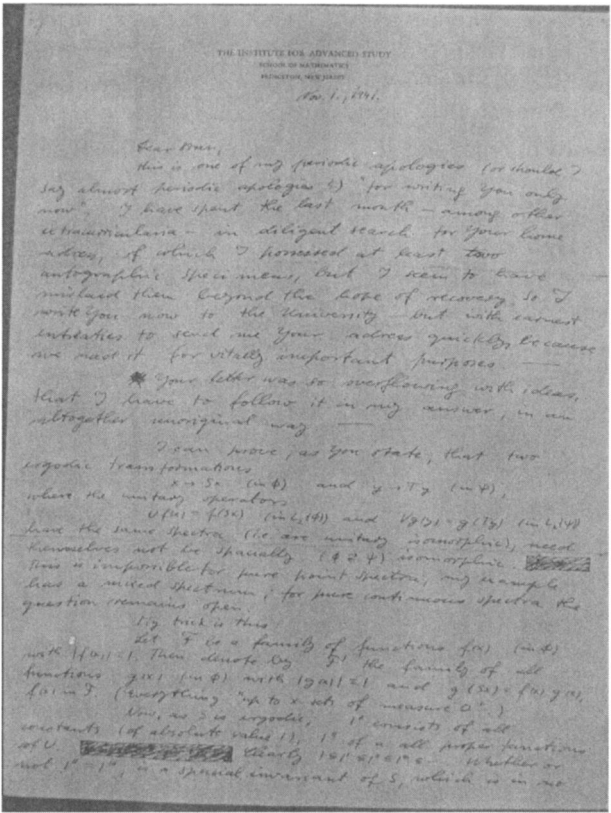 THE INSTITUTE FOR ADVANCED STUDY
SCHOOL OF MATHEMATICS
PRINCETON, NEW JERSEY
Nov. 1941.
Dear
this is one of my periodic apologies (or should I
say almost periodic apologies ?) "for writing you only
now". I have spent the last month – among other
– in diligent search for your home
adress, of which I possessed at least two
autographic specimens, but I seem to have
mislaid them beyond the hope of recovery. So I
write you now to the University – but with earnest
entreaties to send me your adress quickly, because
we need it for vitally important purposes —
Your letter was so overflowing with ideas,
that I have to follow it in my answer, in an
altogether unoriginal way —
I can prove, as you state, that two
ergodic transformations
x → Sx (in Φ) and y → Ty (in Ψ),
where the unitary operators
U f(x) = f(Sx) (in L₂(Φ)) and V g(y) = g(Ty) (in L₂(Ψ))
have the same spectra (i.e. are unitary isomorphic), need
themselves not be spacially (Φ ⇄ Ψ) isomorphic
This is impossible for pure point spectra, my example
has a mixed spectrum; for pure continuous spectra the
question remains open.
My trick is this:
Let F be a family of functions f(x) (in Φ)
with |f(x)| = 1. Then denote by the family of all
functions g(x) (in Φ) with |g(x)| = 1 and g(Sx) = f(x) g(x),
f(x) in F. (Everything "up to x-sets of measure 0".)
Now, as S is ergodic, consists of all
constants (of absolute value 1), of all proper functions
of U. Clearly Whether or
not is a spacial invariant of S, which is in no